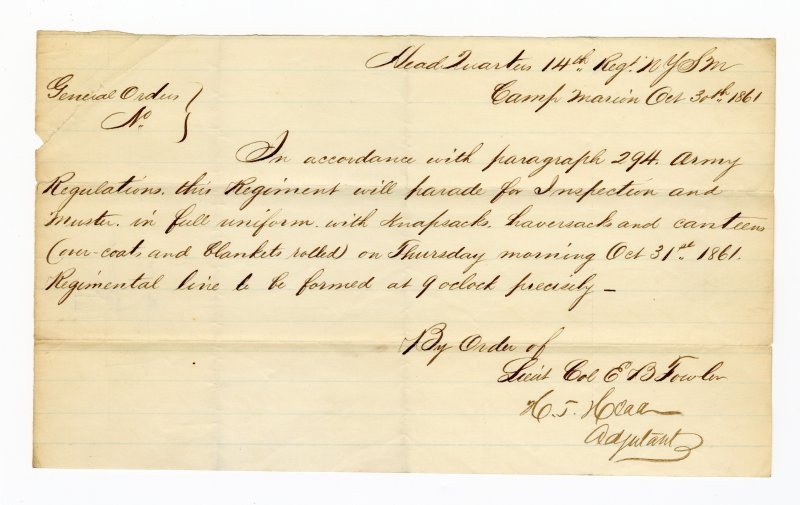 Head Quarters 14th Regt. N Y S M
General Orders
No
Camp Marion Oct 30th. 1861
In accordance with paragraph 294. Army
Regulations. this Regiment will parade for Inspection and
Muster. in full uniform. with Knapsacks, haversacks and canteens
(over-coats and blankets rolled) on Thursday morning Oct 31st. 1861.
Regimental line to be formed at 9 oclock precisely –
By Order of
Lieut Col E B Fowler
H. T. 
Adjutant